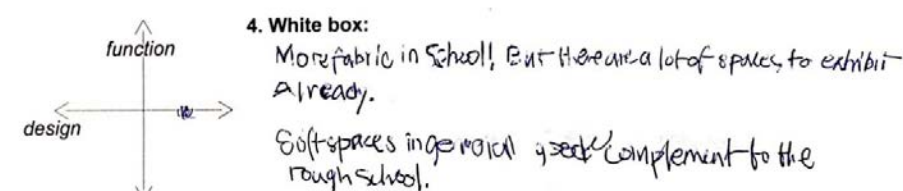 4. White box:
function
More fabric in School! But there are a lot of spaces to exhibit
Already.
design
Soft spaces in general good complement to the
rough school.